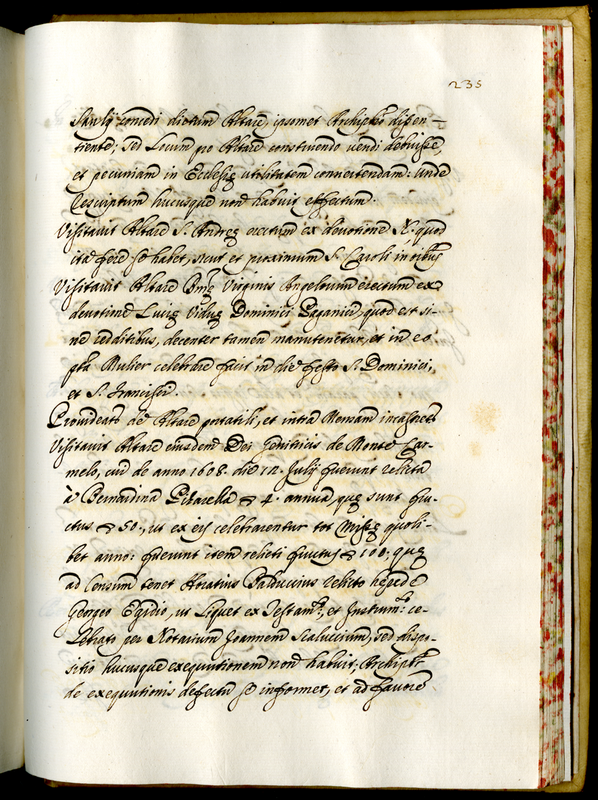 235
concedi dictum Altare, ipsomet Archipbro dissen-
tiente; sed Locum pro Altare construendo vendi debuisse,
et pecuniam in Ecclesię utilitatem convertendam: unde
rescriptum hucusque non habuit effectum.
Visitavit Altare S. Andreę erectum ex devotione N. quod
ita fere se habet, sicut et proximum S. Caroli in oībus
Visitavit Altare Bmę Virginis Angelorum erectum ex
devotione Lucię Viduę Dominici Paganini, quod est si-
ne redditibus, decenter tamen manutenetur, et in eo
pta Mulier celebrare facit in die festo S. Dominici,
et S. Francisci.
de Altare portatili, et intra Mensam
Visitavit Altare eiusdem Dei Genitricis de Monte Car-
melo, cui de anno 1608. die 12. Julij fuerunt relicta
à Bernardina Pitarella 4. annua, quę sunt fru-
ctus 50., ut ex eis celebrarentur tot Missę quoli-
bet anno: fuerunt item relicti fructus 100; quę
ad Censum tenet Horatius Balduccius relicto herede
Georgeo Egidio, ut Liquet ex Testamto, et Instrumto ce-
Lebrato per Notarium Joannem Scaluccium, sed dispo-
sitio hucusque exequutionem non habuit; Archipbr
de exequutionis defectu se informet, et ad favore